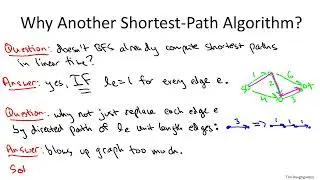 Why Another Shortest-Path Algorithm?
Question: doesn't BFS already compute shortest paths
in linear time?
Answer: yes, IF le=1 for every edge e.
Question: why not just replace each edge e
by directed path of le unit length edges:
3 => 1 1 1
Answer: blows up graph too much.
Sol
Tim Roughgarden